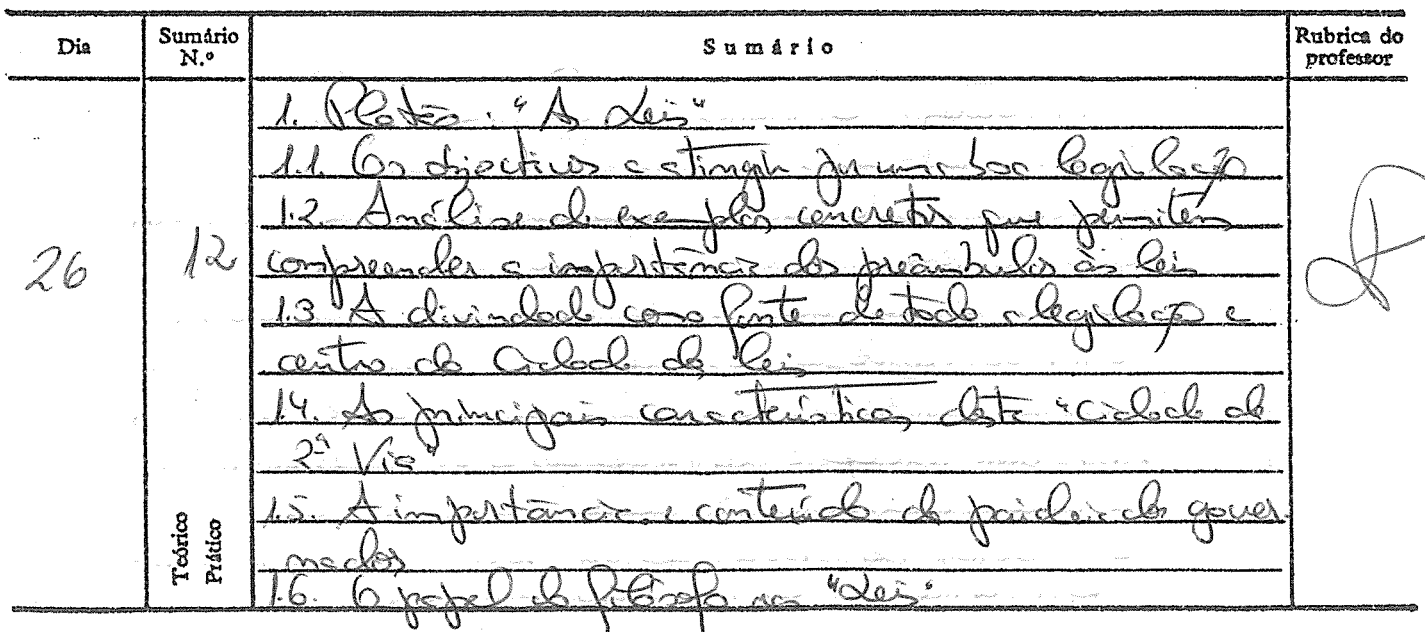 Dia Sumário N.º Sumário Rubrica do professor
1. Platão: "As Leis"
1.1. Os objectivos a atingir por uma boa legislação
1.2. Análise de exemplos concretos que permitem
26 12 compreender a importância dos preâmbulos às leis
1.3 A divindade como fonte de toda a legislação e
centro da Cidade das leis
1.4. As principais características desta "Cidade de
2ª Via"
1.5. A importância e conteúdo da paideia dos gover
nados
1.6. O papel do filósofo nas "Leis"
Teórico
Prático